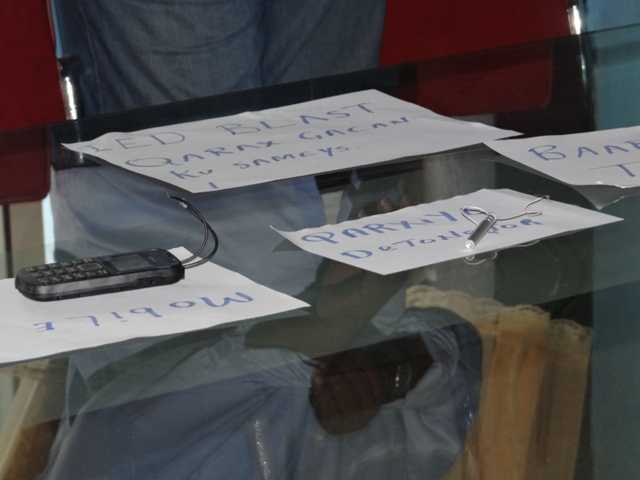 IED BLAST
QARAX GACAN
KU SAMEYS
1
BAAB
T
DETONATOR
MOBILE